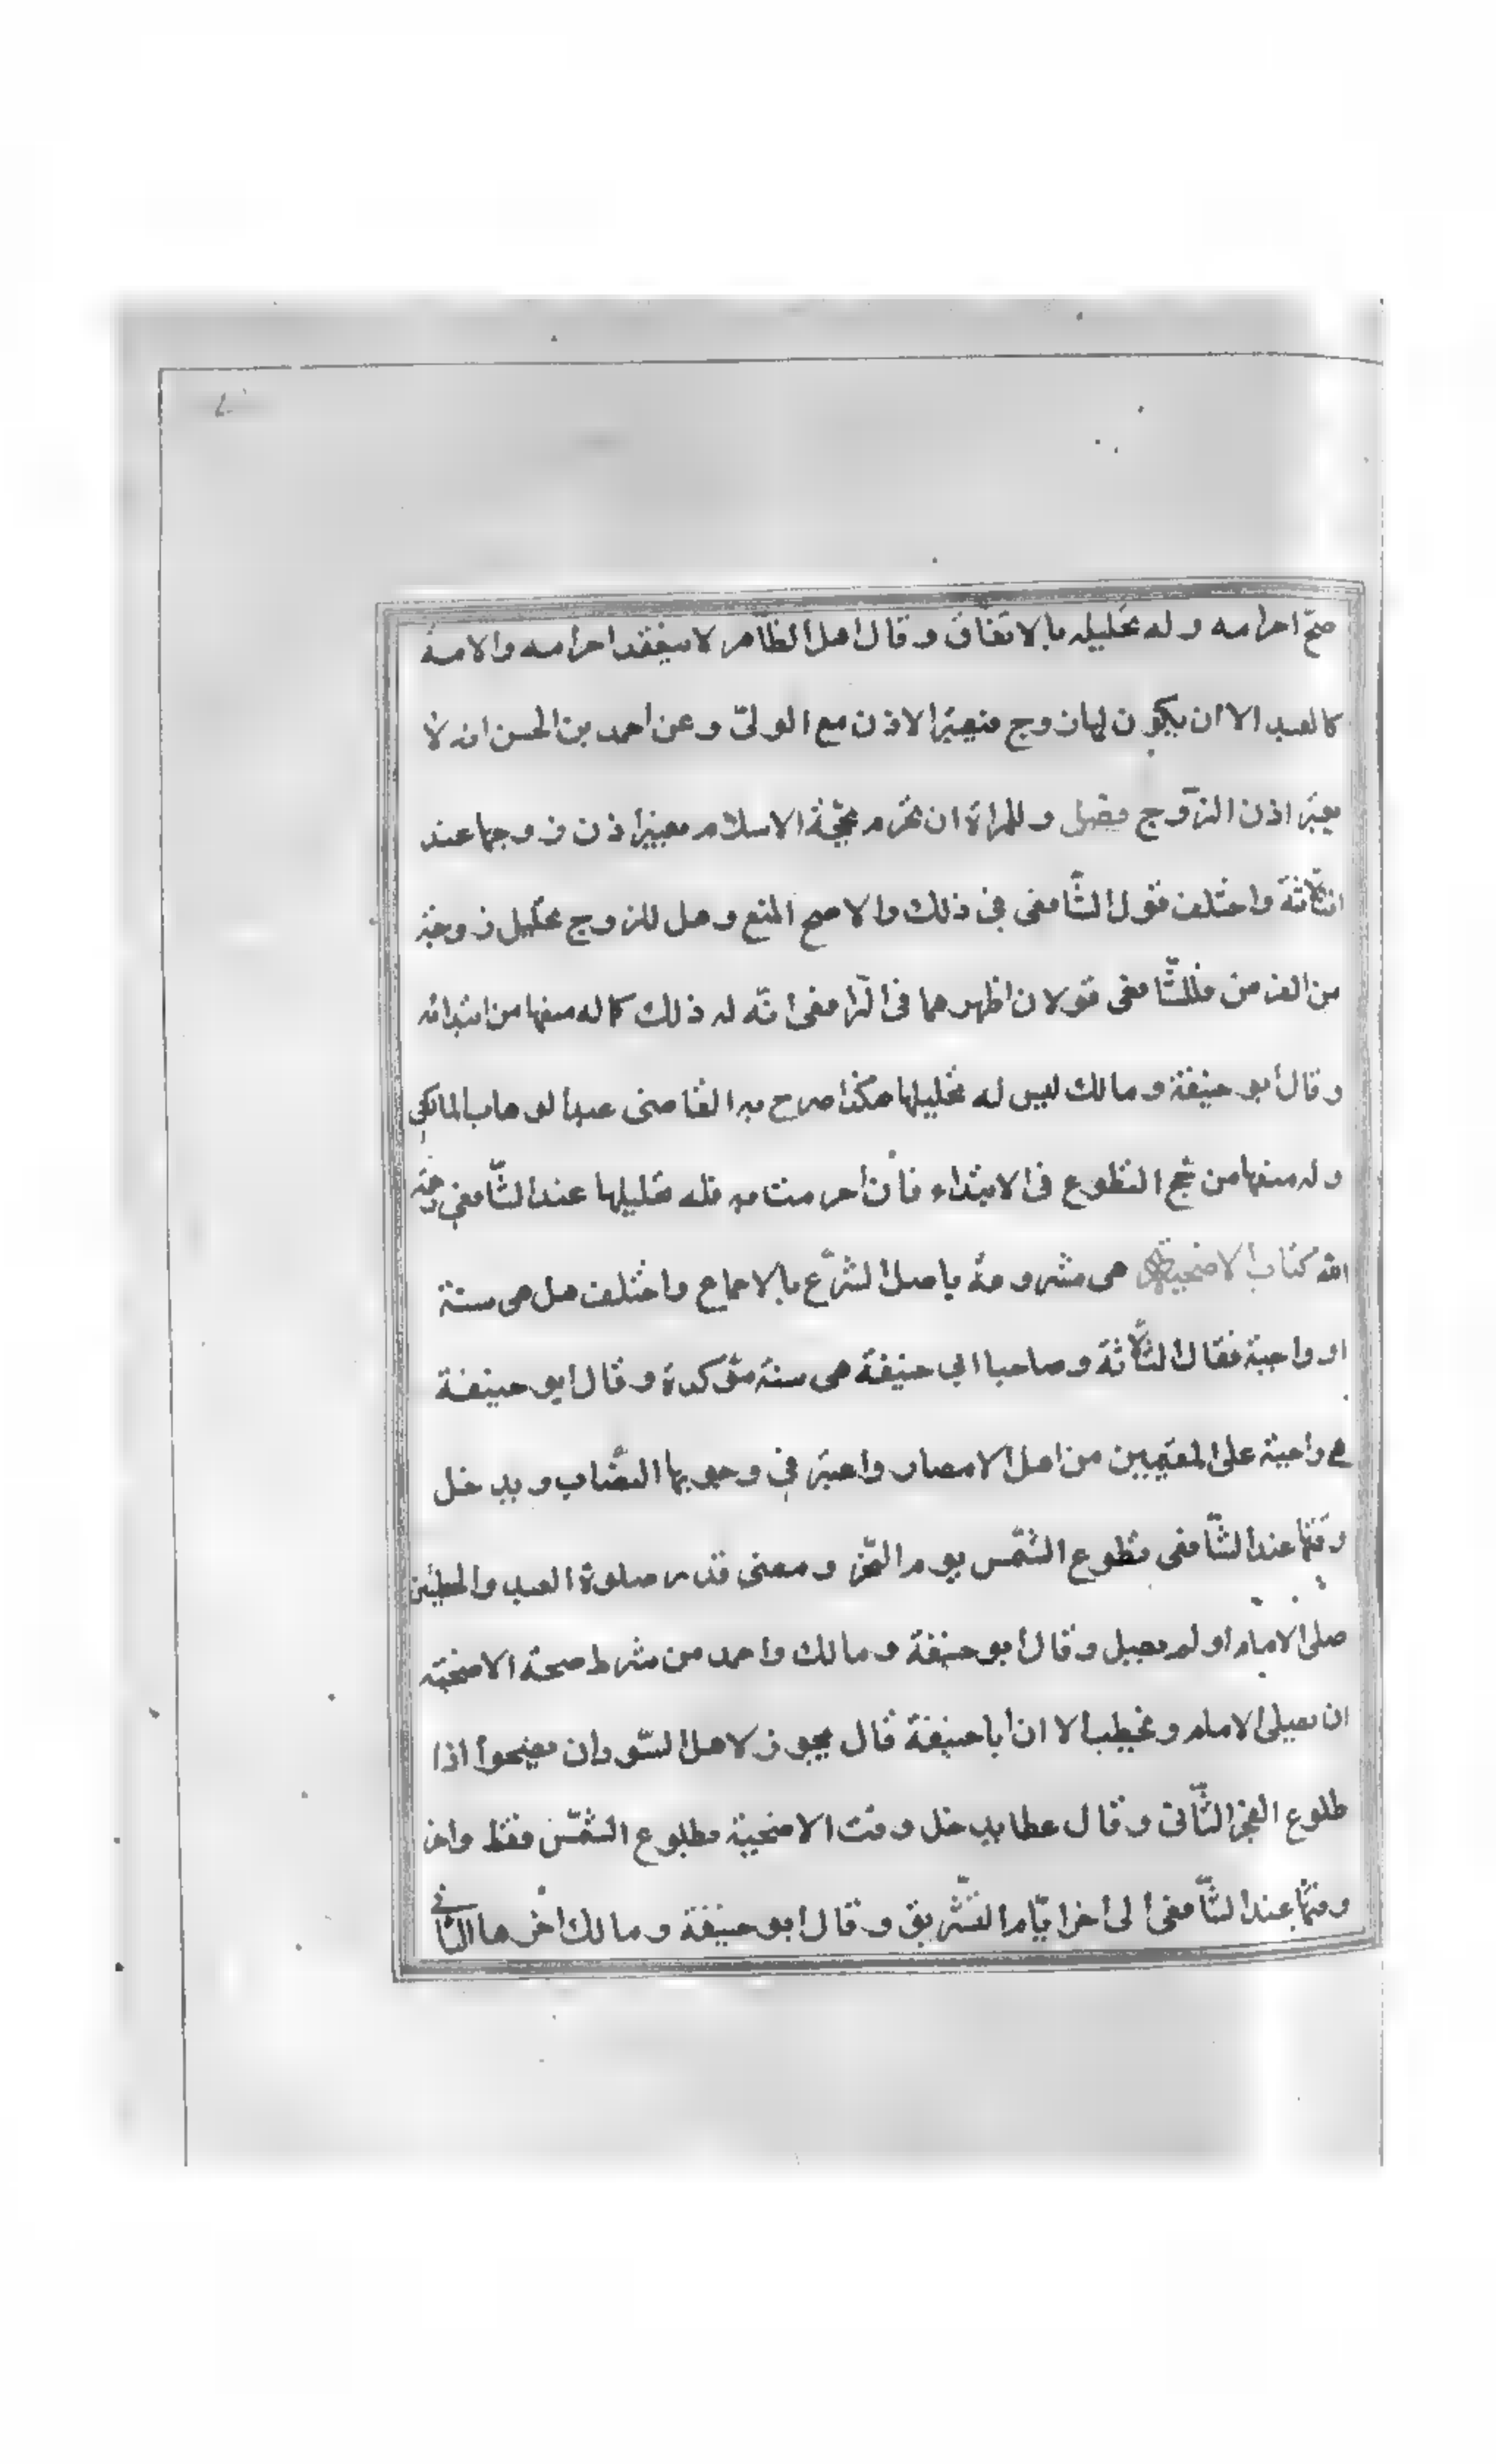 صحّ احرامه وله تحليله بالاتفاق وقال اهل الظاهر لا ينعقد احرامه والامة
كالعبد الا ان يكون لها زوج فيعتبر الاذن مع الولىّ وعن احمد بن الحسن انه لا
يعتبر اذن الزّوج فصل وللمراة ان تحرم بحجّة الاسلام بغير اذن زوجها عند
الثّلاثة واختلف قول الشّافعى فى ذلك والاصح المنع وهل للزوج تحليل زوجته
من الفرض فللشّافعى قولان اظهرهما فى الرّافعى انّه له ذلك كما له منعها من ابتدائه
وقال أبو حنيفة ومالك ليس له تحليلها هكذا صرح به القاضى عبد الوهاب المالكي
وله منعها من حج التطوع فى الابتداء فان احرمت به فله تحليلها عند الشّافعي رحمه
الله كتاب الاضحية هى مشروعة باصل الشّرع بالاجماع واختلف هل هى سنة
او واجبة فقال الثّلاثة وصاحبا ابي حنيفة هى سنة مؤكدة وقال أبو حنيفة
هي واجبة على المقيمين من اهل الامصار واعتبر فى وجوبها النصاب ويدخل
وقتها عند الشّافعى بطلوع الشّمس يوم النّحر ومضى قدر صلوة العيد والخطبتين
صلى الامام او لم يصل وقال أبو حنيفة ومالك واحمد من شرط صحة الاضحية
ان يصلى الامام ويخطب الا ان أبا حنيفة قال يجوز لاهل السّواد ان يضحوا اذا
طلوع الفجر الثّانى وقال عطا يدخل وقت الاضحية بطلوع الشّمس فقط واخر
وقتها عند الشّافعى الى اخر ايّام التّشريق وقال أبو حنيفة ومالك اخرها الثانى